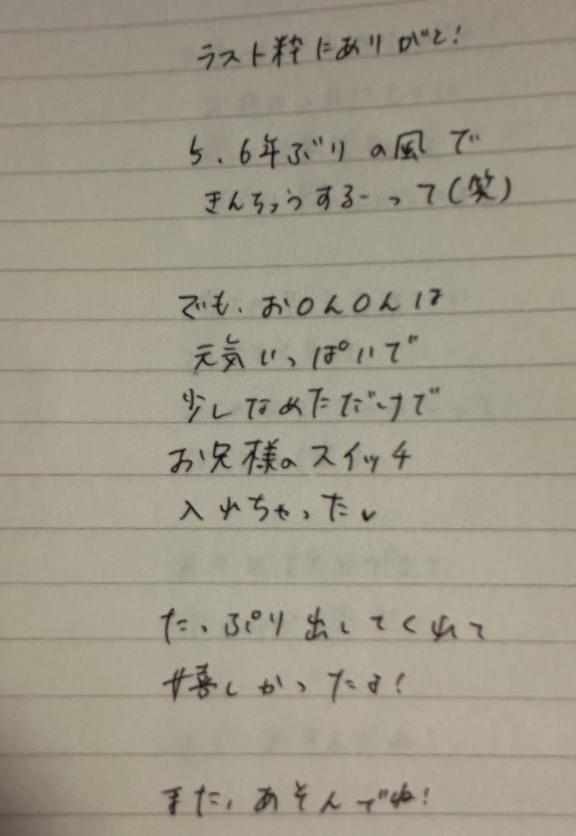 ラスト枠にありがと!
5、6年ぶりの風で
きんちょうするーって(笑)
でも、お〇ん〇んは
元気いっぱいで
少しなめただけで
お兄様のスイッチ
入れちゃった
たっぷり出してくれて
嬉しかったよ!
また、あそんでね!